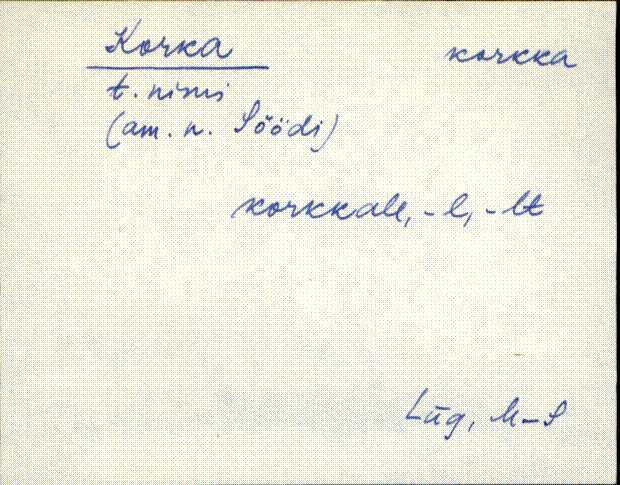 Korka korkka
t. nimi
(am. n. Söödi)
korkkalle, -l, -lt
Lüg, M-S